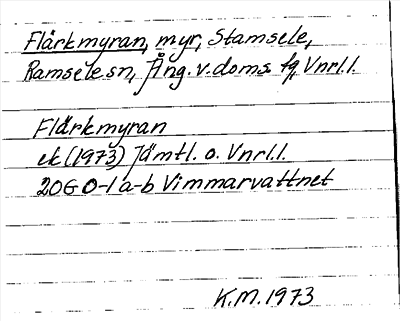 Flärkmyran, myr, Stamsele,
Ramsele sn, Ång. v. doms. fg, Vnrl.l.
Flärkmyran
ek (1973) Jämtl. o. Vnrl.l.
20G 0-1 a-b Vimmarvattnet
K.M. 1973